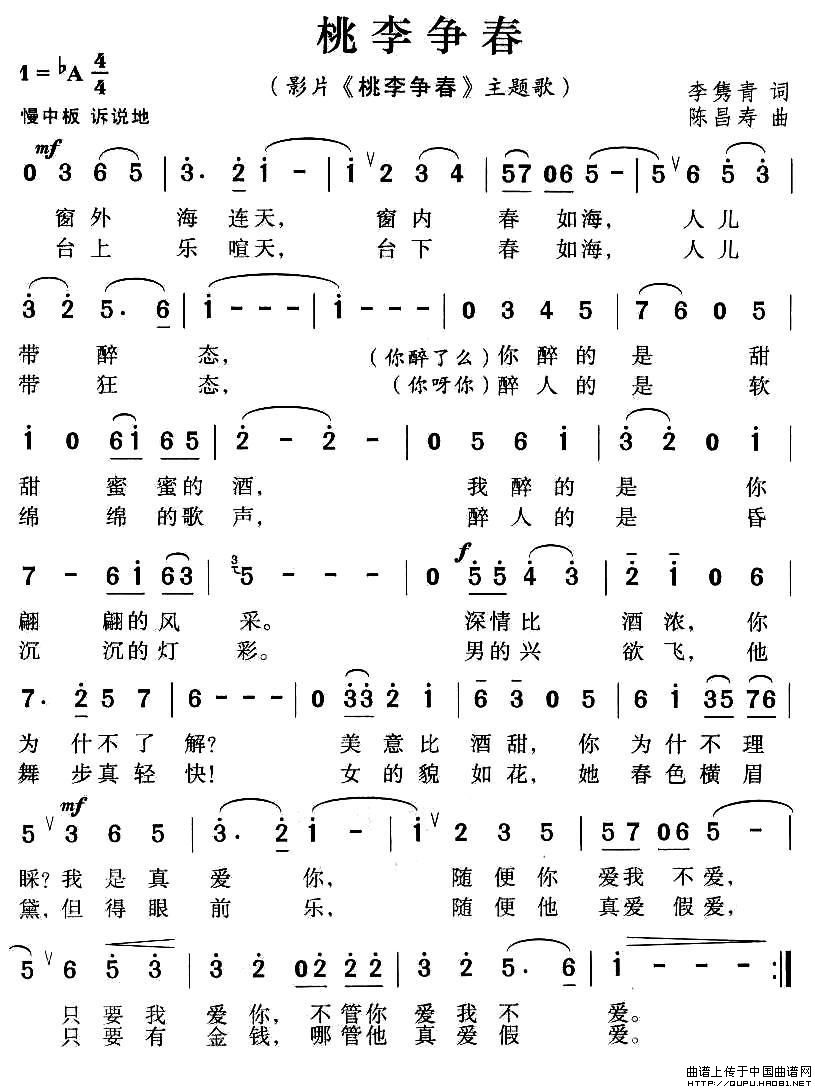 桃李争春
1=♭A 4/4
(影片《桃李争春》主题歌)
李隽青 词
慢中板 诉说地
陈昌寿 曲
mf
0 3 6 5 | 3̇. 2̇ 1̇ - | 1̇ 2 3 4 | 57 06 5 - | 5 6 5̇ 3̇ |
窗外 海连天, 窗内 春如海, 人儿
台上 乐喧天, 台下 春如海, 人儿
3̇ 2̇ 5. 6 | 1̇ - - - | 1̇ - - - | 0 3 4 5 | 7 6 0 5 |
带醉 态, (你醉了么)你醉的是甜
带狂 态, (你呀你)醉人的是软
1̇ 0 61̇ 65 | 2̇ - 2̇ - | 0 5 6 1̇ | 3̇ 2̇ 0 1̇ |
甜 蜜蜜的酒, 我醉的是你
绵 绵的歌声, 醉人的是昏
f
7 - 61̇ 63 | 5 - - | 0 5̇5̇ 4̇ 3̇ | 2̇ 1̇ 0 6 |
翩 翩的风采。 深情比酒浓, 你
沉 沉的灯彩。 男的兴欲飞, 他
7. 2̇ 5 7 | 6 - - - | 0 3̇3̇ 2̇ 1̇ | 6 3 0 5 | 6 1̇ 35 76 |
为什不了解? 美意比酒甜, 你为什不理
舞步真轻快! 女的貌如花, 她春色横眉
mf
5 3 6 5 | 3̇. 2̇ | 1̇ - - - | 1̇ 2 3 5 | 57 06 5 - |
睬?我是真爱你, 随便你爱我不爱,
黛,但得眼前乐, 随便他真爱假爱,
5 6 5̇ 3̇ | 3̇ 2̇ 02̇ 2̇2̇ | 3̇ 2̇ 5. 6 | 1̇ - - - :||
只要我爱你,不管你爱我不爱。
只要有金钱,哪管他真爱假爱。
曲谱上传于中国曲谱网
HTTP://QUPU.HAO81.NET